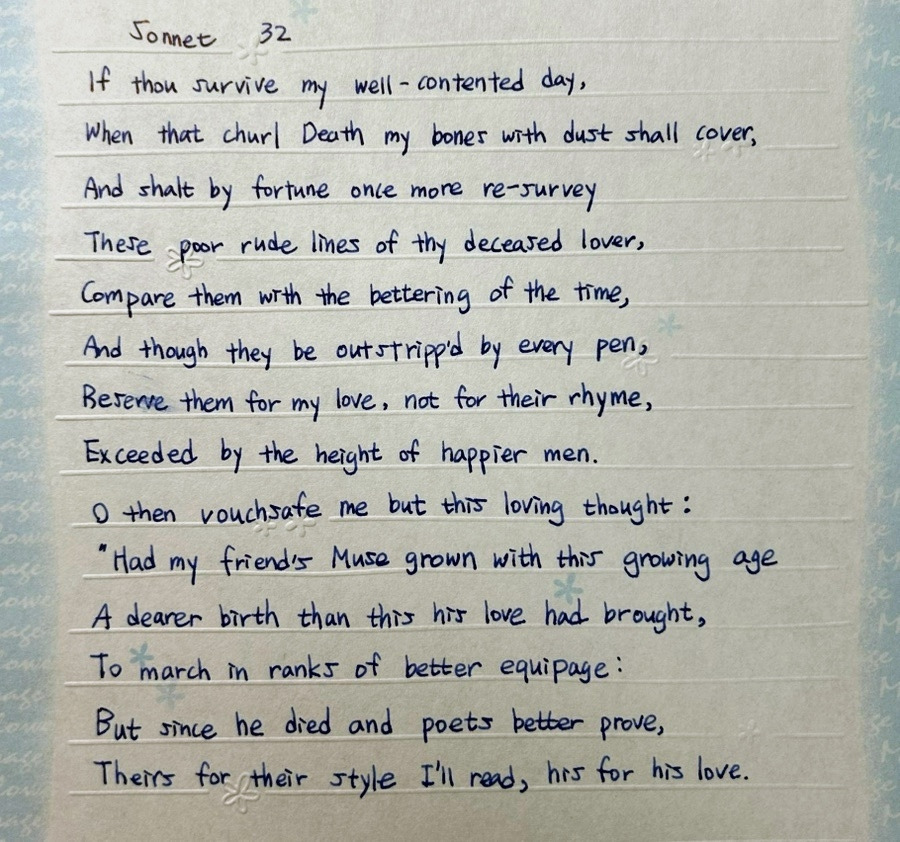 Sonnet 32
If thou survive my well-contented day,
When that churl Death my bones with dust shall cover,
And shalt by fortune once more re-survey
These poor rude lines of thy deceased lover,
Compare them with the bettering of the time,
And though they be outstripp'd by every pen,
Reserve them for my love, not for their rhyme,
Exceeded by the height of happier men.
O then vouchsafe me but this loving thought:
"Had my friend's Muse grown with this growing age
A dearer birth than this his love had brought,
To march in ranks of better equipage:
But since he died and poets better prove,
Theirs for their style I'll read, his for his love.